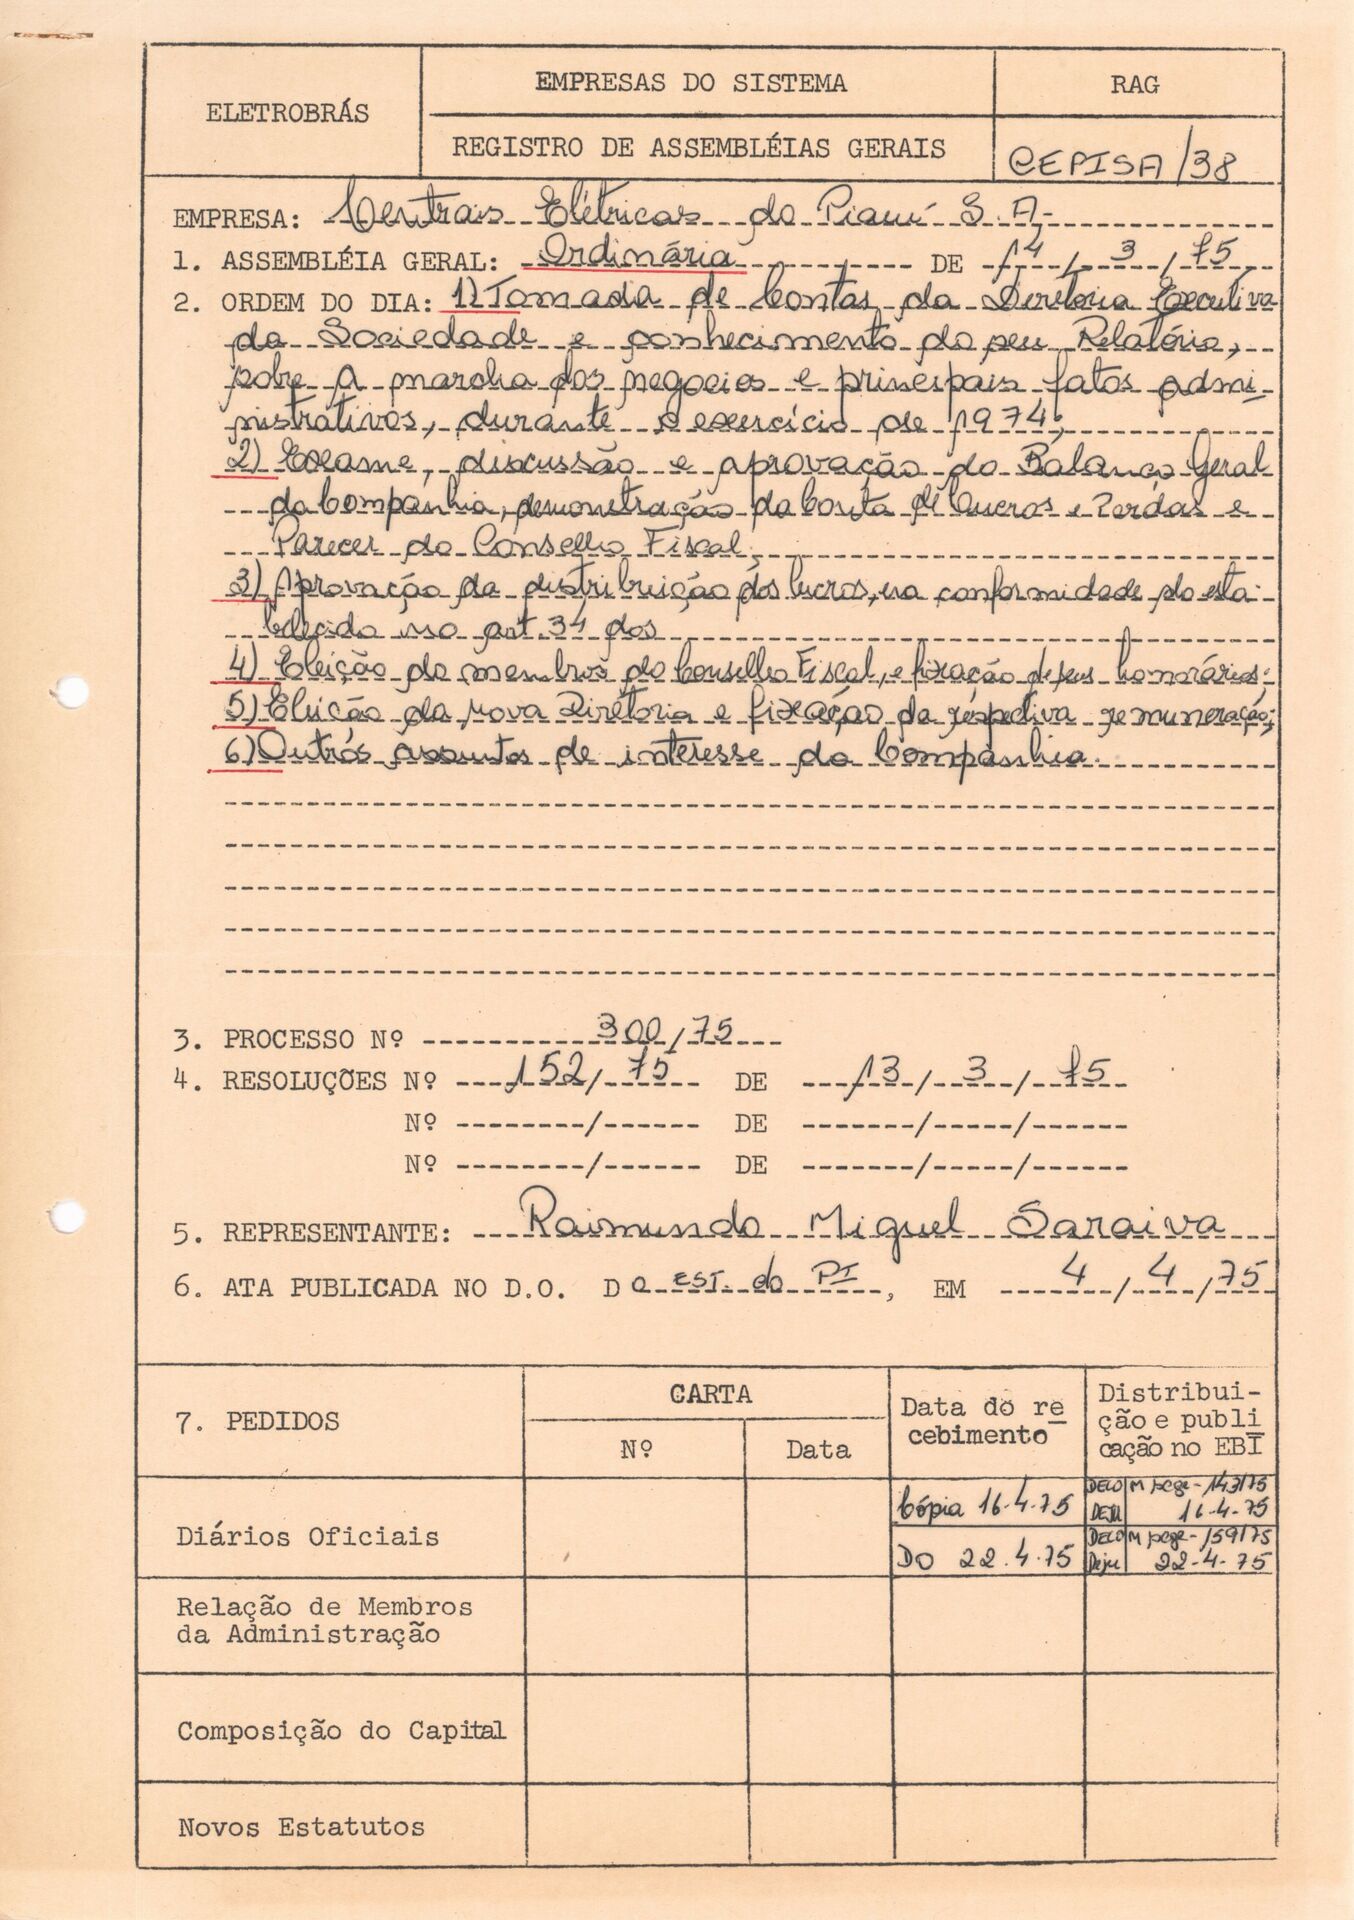 ELETROBRÁS
EMPRESAS DO SISTEMA
RAG
REGISTRO DE ASSEMBLÉIAS GERAIS
CEPISA/38
EMPRESA: Centrais Elétricas do Piauí S.A.
1. ASSEMBLÉIA GERAL: Ordinária DE 14/3/75
2. ORDEM DO DIA: 1) Tomada de Contas da Diretoria Executiva
da Sociedade e conhecimento do seu Relatório,
sobre a marcha dos negocios e principais fatos admi-
nistrativos, durante o exercício de 1974;
2) Exame, discussão e aprovação do Balanço Geral
da Companhia, demonstração da Conta de Lucros e Perdas e
Parecer do Conselho Fiscal;
3) Aprovação da distribuição dos lucros, na conformidade do esta-
belecido no art. 34 dos
4) Eleição do membros do Conselho Fiscal, e fixação de seus honorários;
5) Eleição da nova Diretoria e fixação da respectiva remuneração;
6) Outros assuntos de interesse da Companhia.
3. PROCESSO Nº 300/75
4. RESOLUÇÕES Nº 152/75 DE 13/3/75
Nº / DE / /
Nº / DE / /
5. REPRESENTANTE: Raimundo Miguel Saraiva
6. ATA PUBLICADA NO D.O. DO EST. do PI, EM 4/4/75
7. PEDIDOS
CARTA
Nº
Data
Data do re
cebimento
Distribui-
ção e publi
cação no EBI
Diários Oficiais
Cópia 16.4.75
DECO M pcge-143/75
DEJU 16-4-75
DO 22.4.75
DECO M pcge-159/75
Deju 22-4-75
Relação de Membros
da Administração
Composição do Capital
Novos Estatutos